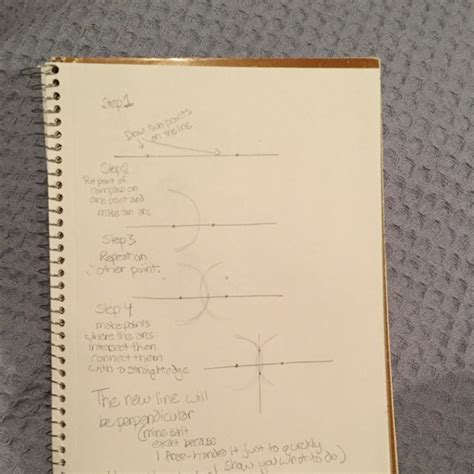 Step 1
Draw two points
on the line
Step 2
Put point of
compass on
one point and
make an arc
Step 3
Repeat on
other point.
Step 4
make points
where line arcs
intersect then
connect them
with a straightedge
The new line will
be perpendicular
exact because
I free-handed it just to quickly
show you what to do)